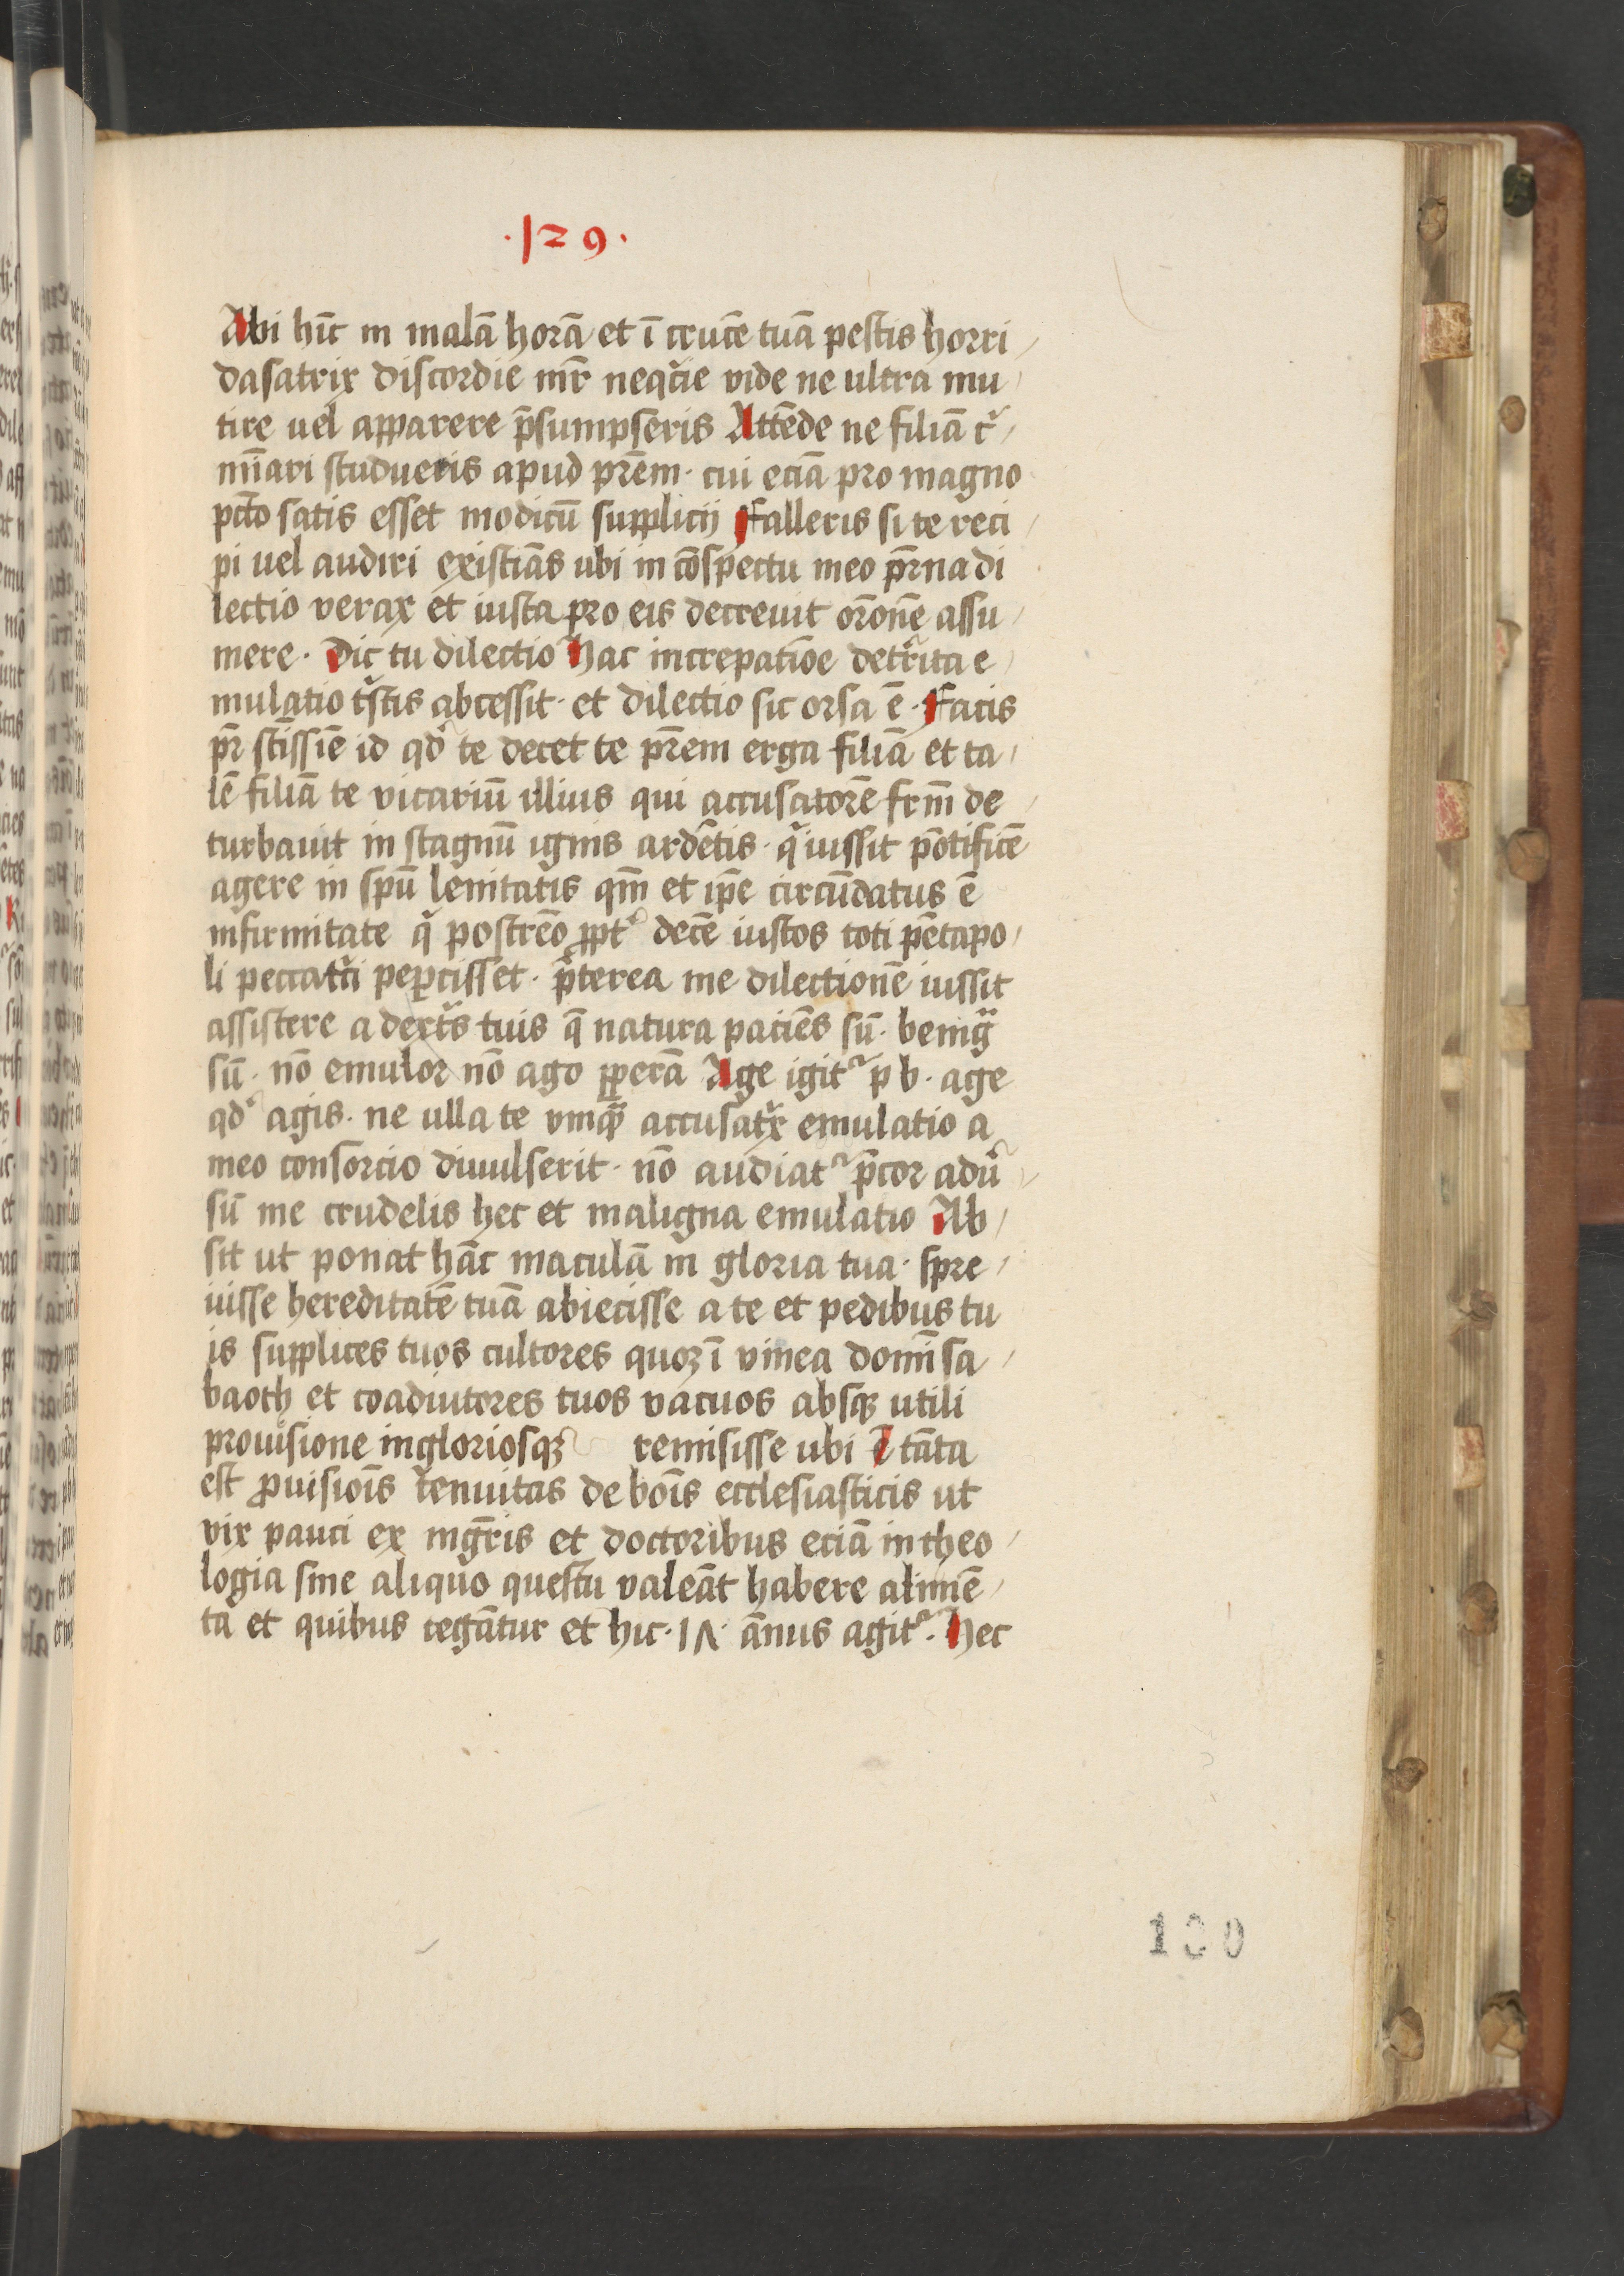 ·129·
Abi hīc in malā horā et ī crucē tuā pestis horri
da satrix discordie mr̄ neqͨie vide ne ultra mu
tire uel apparere p̄sumpseris Attēde ne filiā cͬ
mīari studueris apud prēm · cui eciā pro magno
pcc̄to satis esset modicū supplicij Falleris si te reci
pi uel audiri existiās ubi in cōspectu meo pr̄na di
lectio verax et iusta pro eis decreuit orōnē assu
mere · Dic tu dilectio Hac increpatiōe detͥrita e
mulatio tͥstis abcessit · et dilectio sic orsa ē · Facis
pr̄ stīssīe id qd̓ te decet te prēm erga filiā et ta
lē filiā te vicariū illius qui accusatorē frm̄ de
turbauit in stagnū ignis ardētis · qͥ iussit pōtificē
agere in spū lenitatis qm̄ et ip̄e circūdatus ē
infirmitate qͥ postrēo ꝓpt᷑ decē iustos toti pētapo
li peccatͥci peꝑcisset · p̄terea me dilectionē iussit
assistere a dextͥs tuis q̄ natura paciēs sū · benigᷓ
sū · nō emulor nō ago ꝑperā Age igit᷑ p b · age
qd̓ agis · ne ulla te vmqᷓ accusatͥx emulatio a
meo consorcio diuulserit · nō audiat᷑ p̄cor adu᷑
sū me crudelis hec et maligna emulatio Ab
sit ut ponat hāc maculā in gloria tua · spre
uisse hereditatē tuā abiecisse a te et pedibus tu
is supplices tuos cultores quoꝝ ī vinea domī sa
baoth et coadiutores tuos vacuos absqꝫ utili
prouisione ingloriosqꝫ remisisse ubi ē tāta
est ꝓuisiōis tenuitas de boīs ecclesiasticis ut
vix pauci ex mgr̄is et doctoribus eciā in theo
logia sine aliquo questu valeāt habere alimē
ta et quibus tegātur et hic · 1Λ · ānus agit᷑ · Hec
130